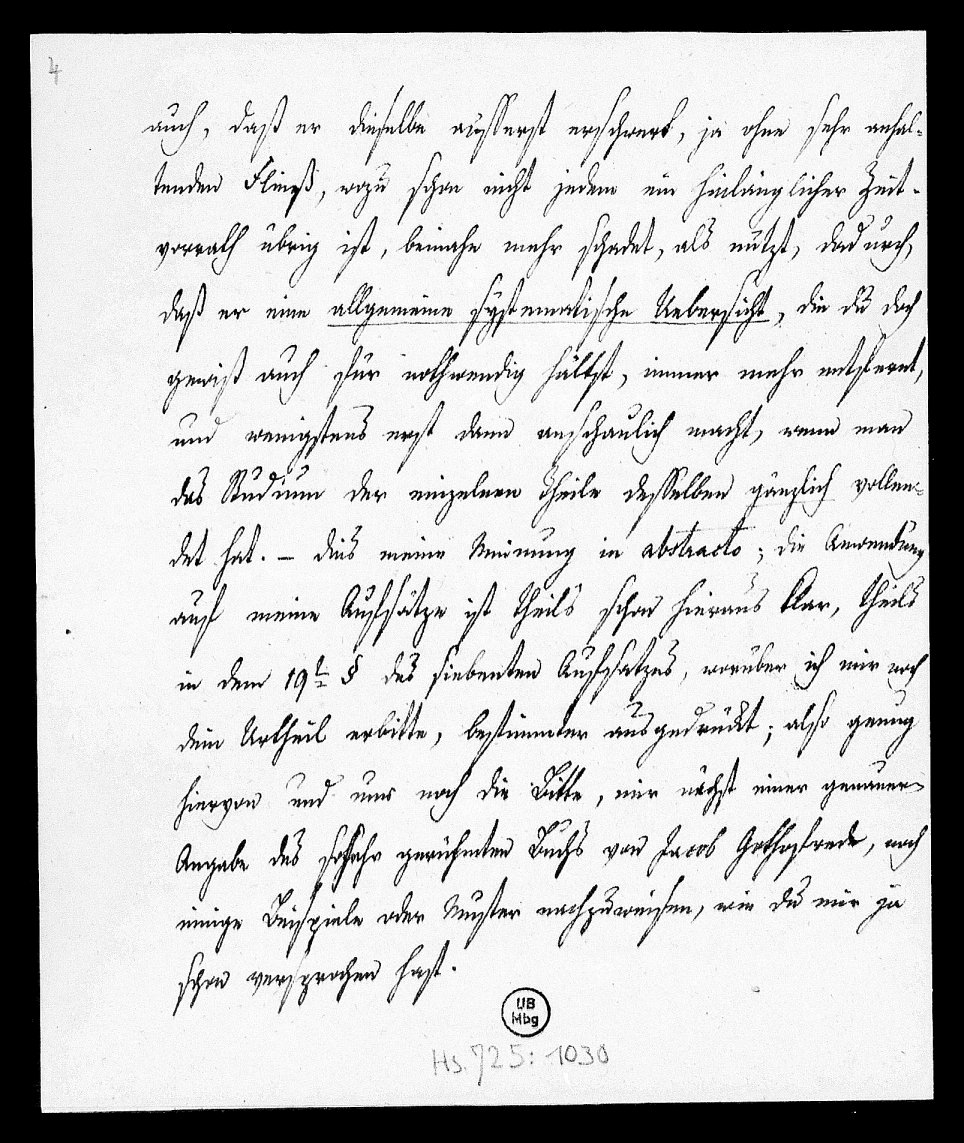 4
auch, daß er dieselbe äusserst erschwert, ja ohne sehr anhal-
tenden Fleiß, wozu schon nicht jedem ein hinlänglicher Zeit-
vorrath übrig ist, beinahe mehr schadet, als nützt, dadurch,
daß er eine allgemeine systematische Uebersicht, die du doch
gewiß auch für nothwendig hältst, immer mehr entfernt,
und wenigstens erst dann anschaulich macht, wenn man
das Studium der einzelnen Theile desselben gänzlich vollen-
det hat. – dies meine Meinung in abstracto; die Anwendung
auf meine Aufsätze ist theils schon hieraus klar, theils
in dem 19t § des siebenten Aufsatzes, worüber ich mir noch
dein Urtheil erbitte, bestimmter ausgedrückt; also genug
hiervon und nur noch die Bitte, mir nächst einer genauer-
Angabe des so sehr gerühmten Buchs von Jacob Gothofrede, noch
einige Beispiele oder Muster nachzuweisen, wie du mir ja
schon versprochen hast.
UB
Mbg
Hs. 725: 1030